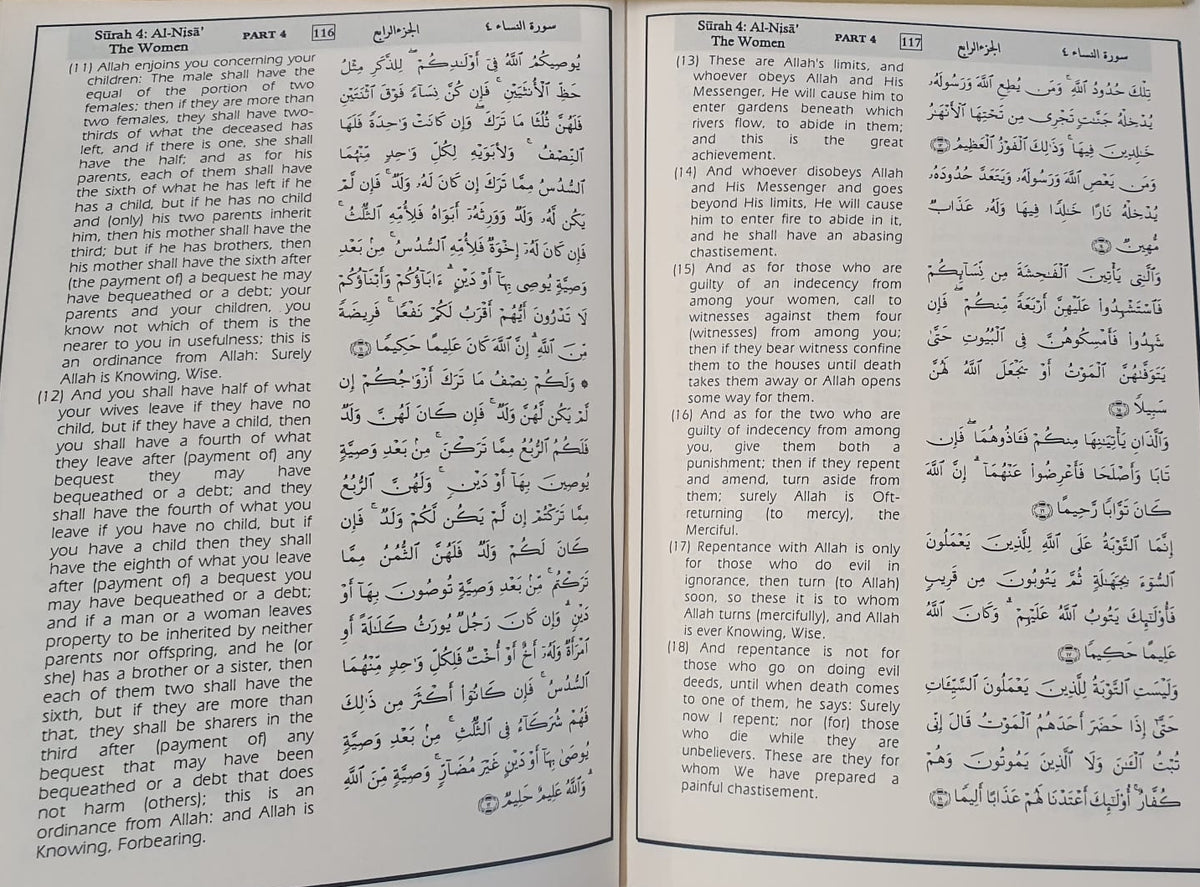 Sūrah 4: Al-Nisā'
The Women
PART 4
116
الجزء الرابع
سورة النساء ٤
(11) Allah enjoins you concerning your
children: The male shall have the
equal of the portion of two
females: then if they are more than
two females, they shall have two-
thirds of what the deceased has
left, and if there is one, she shall
have the half; and as for his
parents, each of them shall have
the sixth of what he has left if he
has a child, but if he has no child
and (only) his two parents inherit
him, then his mother shall have the
third; but if he has brothers, then
his mother shall have the sixth after
(the payment of) a bequest he may
have bequeathed or a debt; your
parents and your children, you
know not which of them is the
nearer to you in usefulness; this is
an ordinance from Allah: Surely
Allah is Knowing, Wise.
(12) And you shall have half of what
your wives leave if they have no
child, but if they have a child, then
you shall have a fourth of what
they leave after (payment of) any
bequest they may have
bequeathed or a debt; and they
shall have the fourth of what you
leave if you have no child, but if
you have a child then they shall
have the eighth of what you leave
after (payment of) a bequest you
may have bequeathed or a debt;
and if a man or a woman leaves
property to be inherited by neither
parents nor offspring, and he (or
she) has a brother or a sister, then
each of them two shall have the
sixth, but if they are more than
that, they shall be sharers in the
third after (payment of) any
bequest that may have been
bequeathed or a debt that does
not harm (others); this is an
ordinance from Allah: and Allah is
Knowing, Forbearing.
يُوصِيكُمُ ٱللَّهُ فِىٓ أَوْلَـٰدِكُمْ ۖ لِلذَّكَرِ مِثْلُ
حَظِّ ٱلْأُنثَيَيْنِ ۚ فَإِن كُنَّ نِسَآءً فَوْقَ ٱثْنَتَيْنِ
فَلَهُنَّ ثُلُثَا مَا تَرَكَ ۖ وَإِن كَانَتْ وَٰحِدَةً فَلَهَا
ٱلنِّصْفُ ۚ وَلِأَبَوَيْهِ لِكُلِّ وَٰحِدٍ مِّنْهُمَا
ٱلسُّدُسُ مِمَّا تَرَكَ إِن كَانَ لَهُۥ وَلَدٌ ۚ فَإِن لَّمْ
يَكُن لَّهُۥ وَلَدٌ وَوَرِثَهُۥٓ أَبَوَاهُ فَلِأُمِّهِ ٱلثُّلُثُ ۚ
فَإِن كَانَ لَهُۥٓ إِخْوَةٌ فَلِأُمِّهِ ٱلسُّدُسُ ۚ مِنۢ بَعْدِ
وَصِيَّةٍ يُوصِى بِهَآ أَوْ دَيْنٍ ۗ ءَابَآؤُكُمْ وَأَبْنَآؤُكُمْ
لَا تَدْرُونَ أَيُّهُمْ أَقْرَبُ لَكُمْ نَفْعًا ۚ فَرِيضَةً
مِّنَ ٱللَّهِ ۗ إِنَّ ٱللَّهَ كَانَ عَلِيمًا حَكِيمًا ١١
* وَلَكُمْ نِصْفُ مَا تَرَكَ أَزْوَٰجُكُمْ إِن
لَّمْ يَكُن لَّهُنَّ وَلَدٌ ۚ فَإِن كَانَ لَهُنَّ وَلَدٌ
فَلَكُمُ ٱلرُّبُعُ مِمَّا تَرَكْنَ ۚ مِنۢ بَعْدِ وَصِيَّةٍ
يُوصِينَ بِهَآ أَوْ دَيْنٍ ۚ وَلَهُنَّ ٱلرُّبُعُ
مِمَّا تَرَكْتُمْ إِن لَّمْ يَكُن لَّكُمْ وَلَدٌ ۚ فَإِن
كَانَ لَكُمْ وَلَدٌ فَلَهُنَّ ٱلثُّمُنُ مِمَّا
تَرَكْتُم ۚ مِّنۢ بَعْدِ وَصِيَّةٍ تُوصُونَ بِهَآ أَوْ
دَيْنٍ ۗ وَإِن كَانَ رَجُلٌ يُورَثُ كَلَـٰلَةً أَوِ
ٱمْرَأَةٌ وَلَهُۥٓ أَخٌ أَوْ أُخْتٌ فَلِكُلِّ وَٰحِدٍ مِّنْهُمَا
ٱلسُّدُسُ ۚ فَإِن كَانُوٓا۟ أَكْثَرَ مِن ذَٰلِكَ
فَهُمْ شُرَكَآءُ فِى ٱلثُّلُثِ ۚ مِنۢ بَعْدِ وَصِيَّةٍ
يُوصَىٰ بِهَآ أَوْ دَيْنٍ غَيْرَ مُضَآرٍّ ۚ وَصِيَّةً مِّنَ ٱللَّهِ
ۗ وَٱللَّهُ عَلِيمٌ حَلِيمٌ ١٢
Sūrah 4: Al-Nisā'
The Women
PART 4
117
الجزء الرابع
سورة النساء ٤
(13) These are Allah's limits, and
whoever obeys Allah and His
Messenger, He will cause him to
enter gardens beneath which
rivers flow, to abide in them;
and this is the great
achievement.
(14) And whoever disobeys Allah
and His Messenger and goes
beyond His limits, He will cause
him to enter fire to abide in it,
and he shall have an abasing
chastisement.
(15) And as for those who are
guilty of an indecency from
among your women, call to
witnesses against them four
(witnesses) from among you;
then if they bear witness confine
them to the houses until death
takes them away or Allah opens
some way for them.
(16) And as for the two who are
guilty of indecency from among
you, give them both a
punishment; then if they repent
and amend, turn aside from
them; surely Allah is Oft-
returning (to mercy), the
Merciful.
(17) Repentance with Allah is only
for those who do evil in
ignorance, then turn (to Allah)
soon, so these it is to whom
Allah turns (mercifully), and Allah
is ever Knowing, Wise.
(18) And repentance is not for
those who go on doing evil
deeds, until when death comes
to one of them, he says: Surely
now I repent; nor (for) those
who die while they are
unbelievers. These are they for
whom We have prepared a
painful chastisement.
تِلْكَ حُدُودُ ٱللَّهِ ۚ وَمَن يُطِعِ ٱللَّهَ وَرَسُولَهُۥ
يُدْخِلْهُ جَنَّـٰتٍ تَجْرِى مِن تَحْتِهَا ٱلْأَنْهَـٰرُ
خَـٰلِدِينَ فِيهَا ۚ وَذَٰلِكَ ٱلْفَوْزُ ٱلْعَظِيمُ ١٣
وَمَن يَعْصِ ٱللَّهَ وَرَسُولَهُۥ وَيَتَعَدَّ حُدُودَهُۥ
يُدْخِلْهُ نَارًا خَـٰلِدًا فِيهَا وَلَهُۥ عَذَابٌ
مُّهِينٌ ١٤
وَٱلَّـٰتِى يَأْتِينَ ٱلْفَـٰحِشَةَ مِن نِّسَآئِكُمْ
فَٱسْتَشْهِدُوا۟ عَلَيْهِنَّ أَرْبَعَةً مِّنكُمْ ۖ فَإِن
شَهِدُوا۟ فَأَمْسِكُوهُنَّ فِى ٱلْبُيُوتِ حَتَّىٰ
يَتَوَفَّىٰهُنَّ ٱلْمَوْتُ أَوْ يَجْعَلَ ٱللَّهُ لَهُنَّ
سَبِيلًا ١٥
وَٱلَّذَانِ يَأْتِيَـٰنِهَا مِنكُمْ فَـَٔاذُوهُمَا ۖ فَإِن
تَابَا وَأَصْلَحَا فَأَعْرِضُوا۟ عَنْهُمَآ ۗ إِنَّ ٱللَّهَ
كَانَ تَوَّابًا رَّحِيمًا ١٦
إِنَّمَا ٱلتَّوْبَةُ عَلَى ٱللَّهِ لِلَّذِينَ يَعْمَلُونَ
ٱلسُّوٓءَ بِجَهَـٰلَةٍ ثُمَّ يَتُوبُونَ مِن قَرِيبٍ
فَأُو۟لَـٰٓئِكَ يَتُوبُ ٱللَّهُ عَلَيْهِمْ ۗ وَكَانَ ٱللَّهُ
عَلِيمًا حَكِيمًا ١٧
وَلَيْسَتِ ٱلتَّوْبَةُ لِلَّذِينَ يَعْمَلُونَ ٱلسَّيِّـَٔاتِ
حَتَّىٰٓ إِذَا حَضَرَ أَحَدَهُمُ ٱلْمَوْتُ قَالَ إِنِّى
تُبْتُ ٱلْـَٔـٰنَ وَلَا ٱلَّذِينَ يَمُوتُونَ وَهُمْ
كُفَّارٌ ۚ أُو۟لَـٰٓئِكَ أَعْتَدْنَا لَهُمْ عَذَابًا أَلِيمًا ١٨